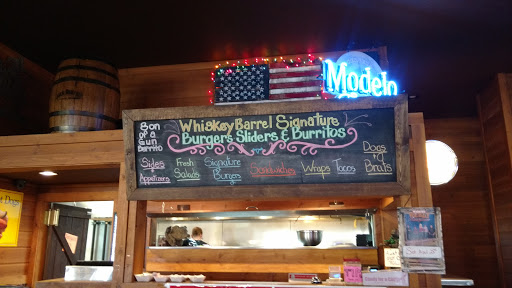 Modelo
Whiskey Barrel Signature
Burgers Sliders & Burritos
Son
of a
Gun
Burrito
Sides
+
Appetizers
Fresh
Salads
Signature
Burgers
Sandwiches
Wraps
Tacos
Dogs
+
Brats